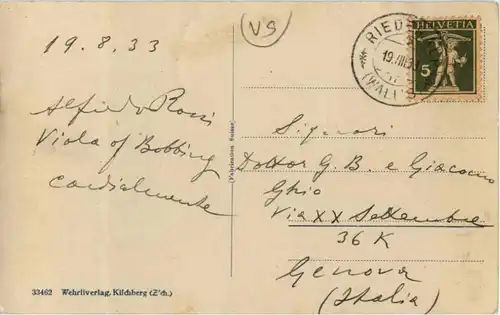 VS
19.8.33
Alfredo Rossi
Viola of Bobbing
cordialmente
(Fabrication Suisse)
HELVETIA
5
RIED
19.VIII.
(WALLIS
Signori
Dottor G. B. e Giacomo
Ghio
Via XX Settembre
36 K
Genova
(Italia)
33462 Wehrliverlag, Kilchberg (Z'ch.)